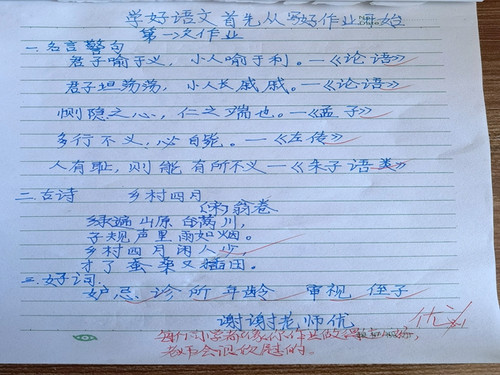 学好语文首先从写好作业开始
第一次作业
一.名言警句
君子喻于义,小人喻于利。—《论语》
君子坦荡荡,小人长戚戚。—《论语》
恻隐之心,仁之端也。—《孟子》
多行不义,必自毙。—《左传》
人有耻,则能有所不义—《朱子语类》
二.古诗 乡村四月
(宋)翁卷
绿遍山原白满川,
子规声里雨如烟。
乡村四月闲人少,
才了蚕桑又插田。
三.好词:
妒忌、诊所 年龄 审视 侄子
谢谢老师优
优
老师会很欣慰的.